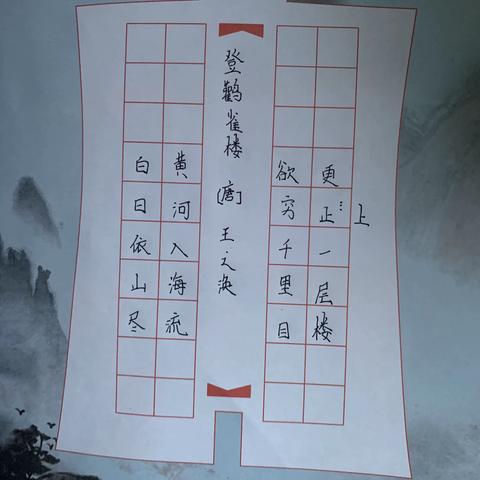 登鹳雀楼 [唐] 王之涣
白日依山尽
黄河入海流
欲穷千里目
更正一层楼
上